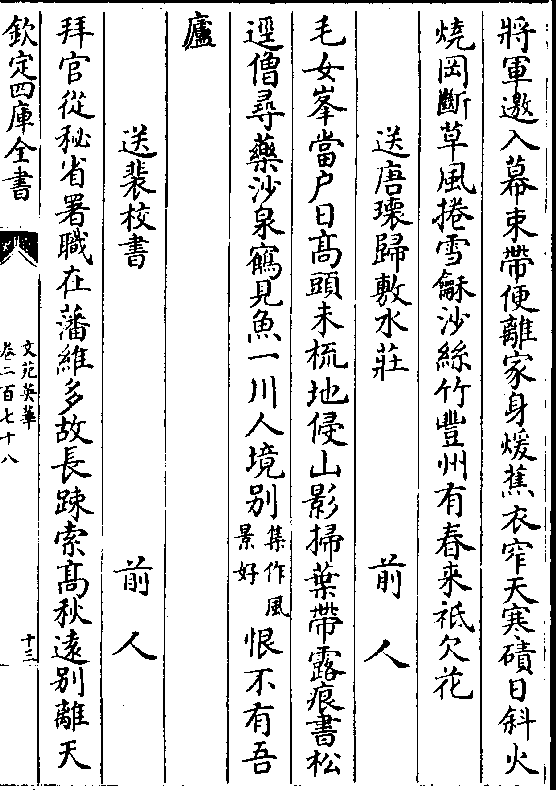 將軍邀入幕束帶便離家身煖蕉衣窄天寒磧日斜火
燒岡斷草風捲雪龢沙絲竹豐州有春来祗欠花
送唐瓌歸敷水莊 前人
毛女峯當户日髙頭未梳地侵山影掃葉帶露痕書松
逕僧尋藥沙泉鶴見魚一川人境别集作風景好恨不有吾
廬
送裴校書 前人
拜官從秘省署職在藩維多故長踈索髙秋遠别離天
欽定四庫全書
文苑英華
卷二百七十八
十三